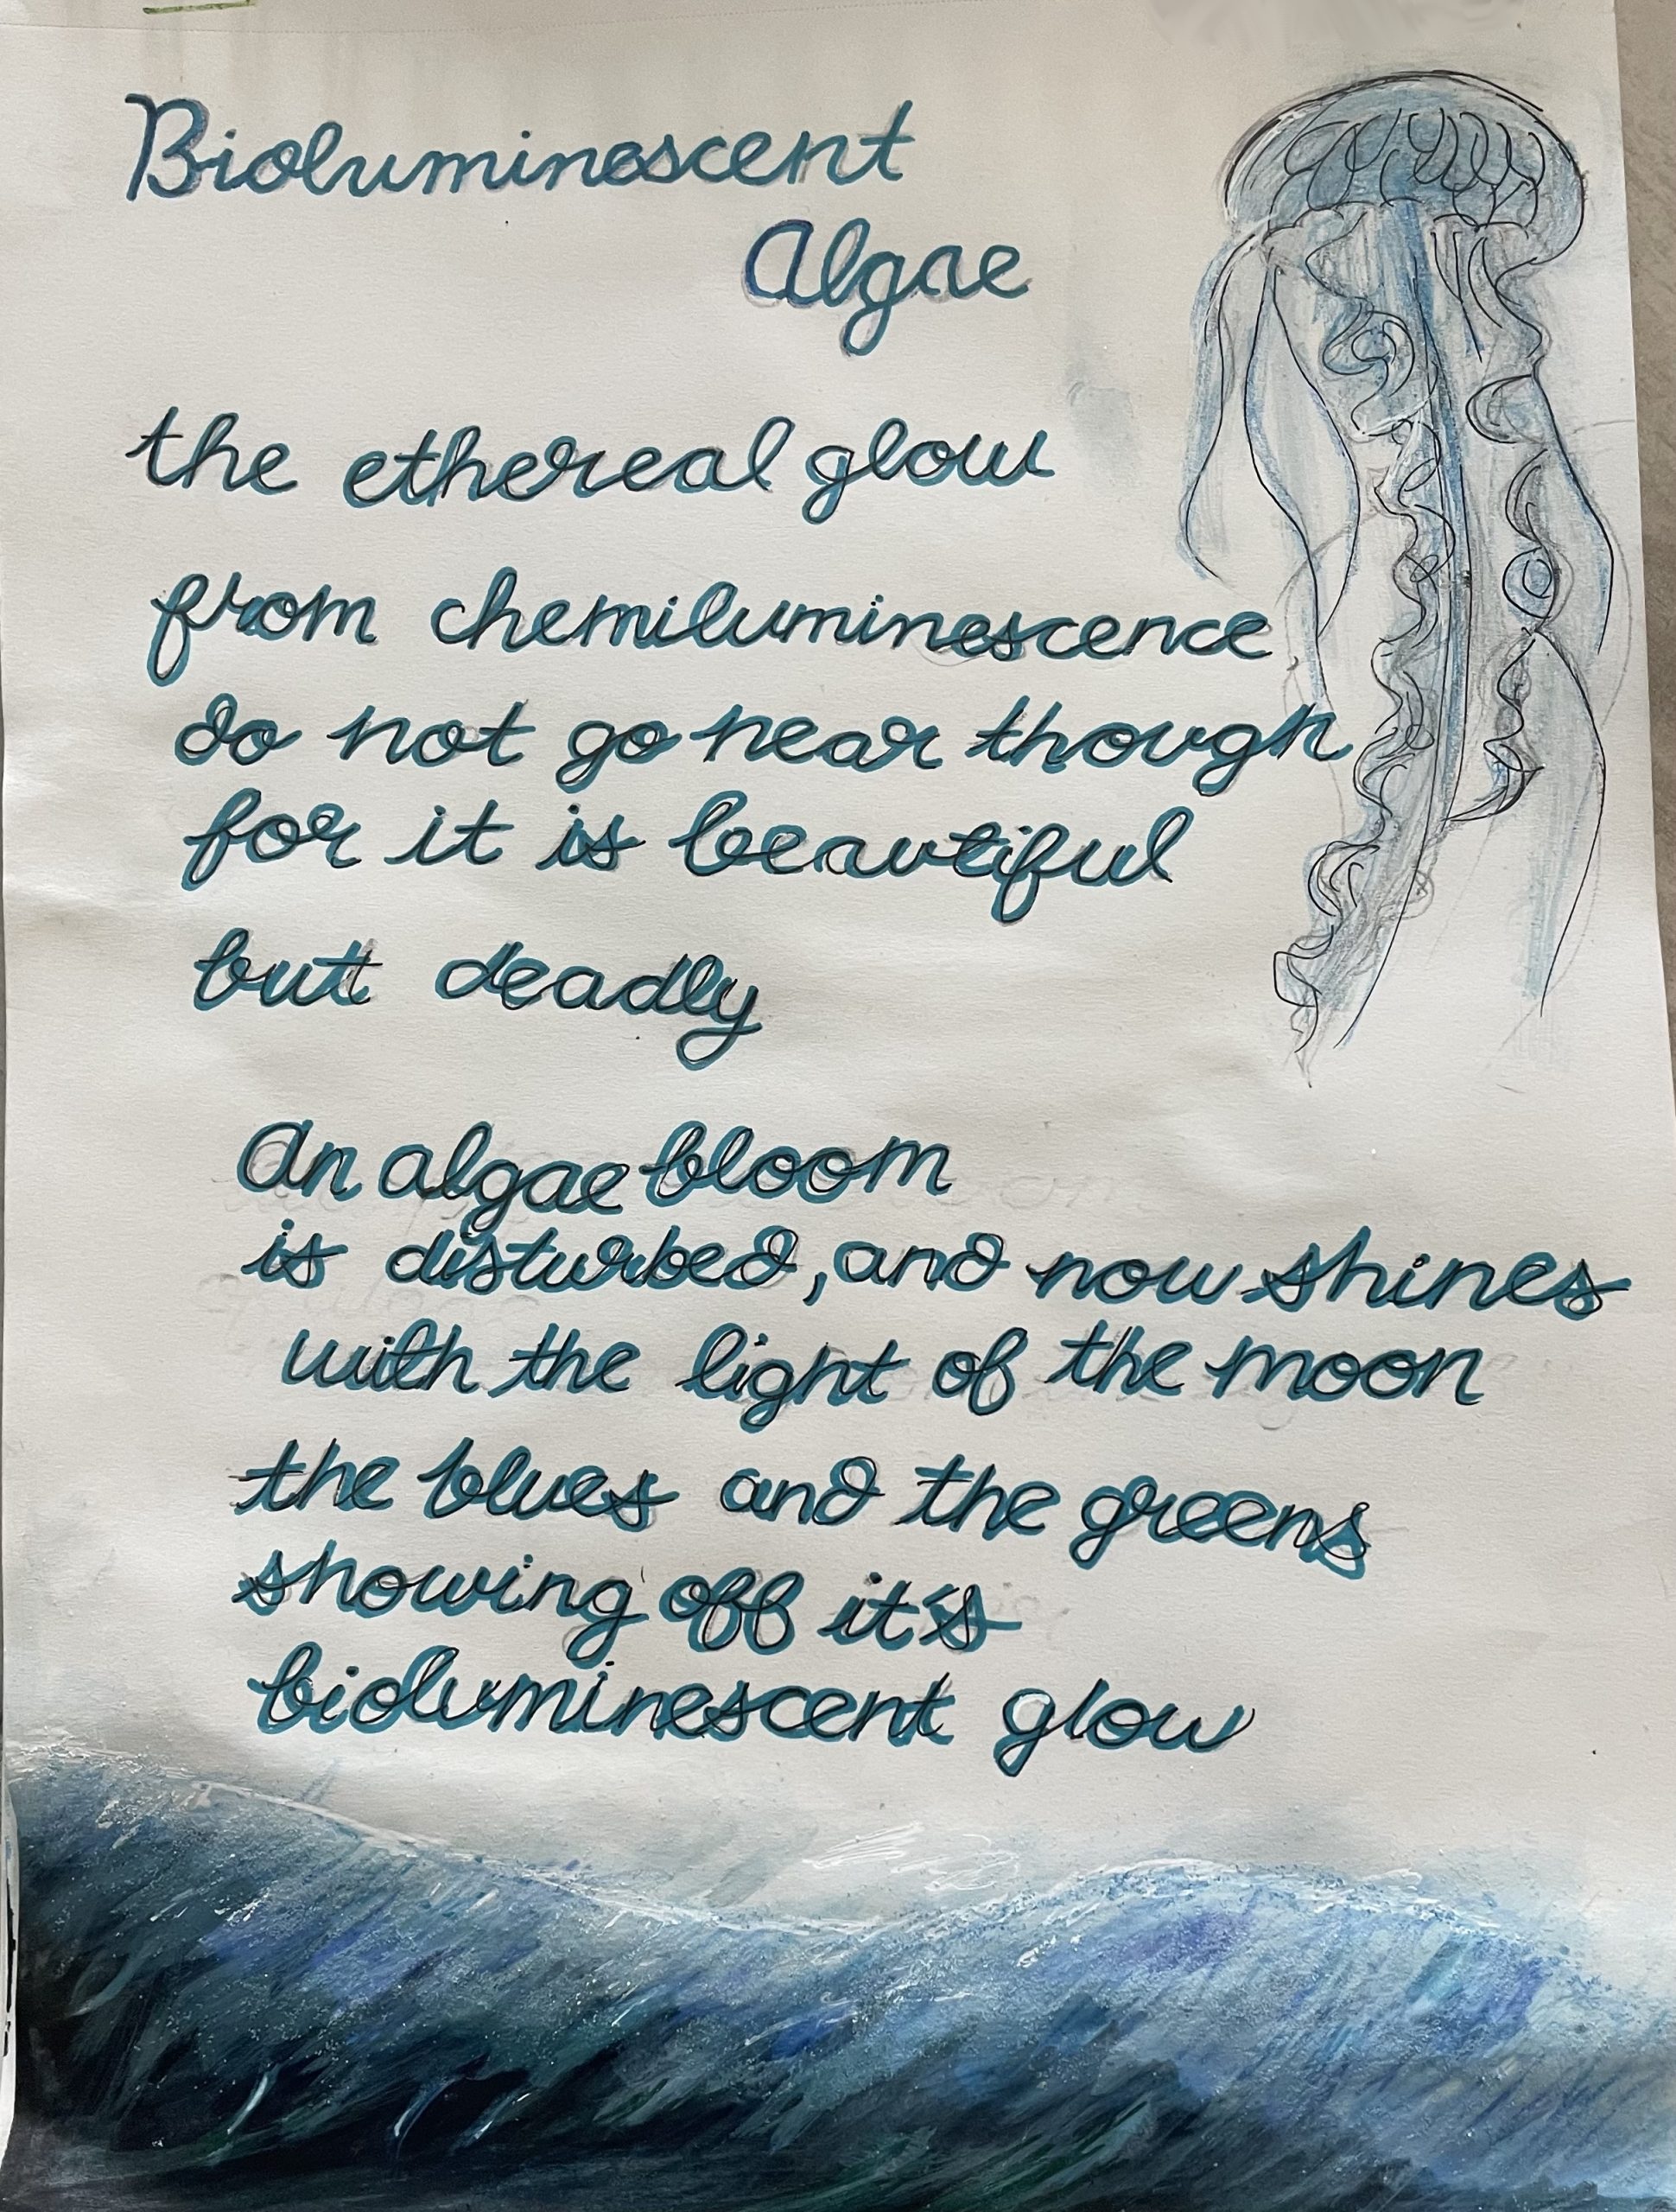 Bioluminescent
Algae
the ethereal glow
from chemiluminescence
do not go near though
for it is beautiful
but deadly
An algae bloom
is disturbed, and now shines
with the light of the moon
the blues and the greens
showing off it's
bioluminescent glow